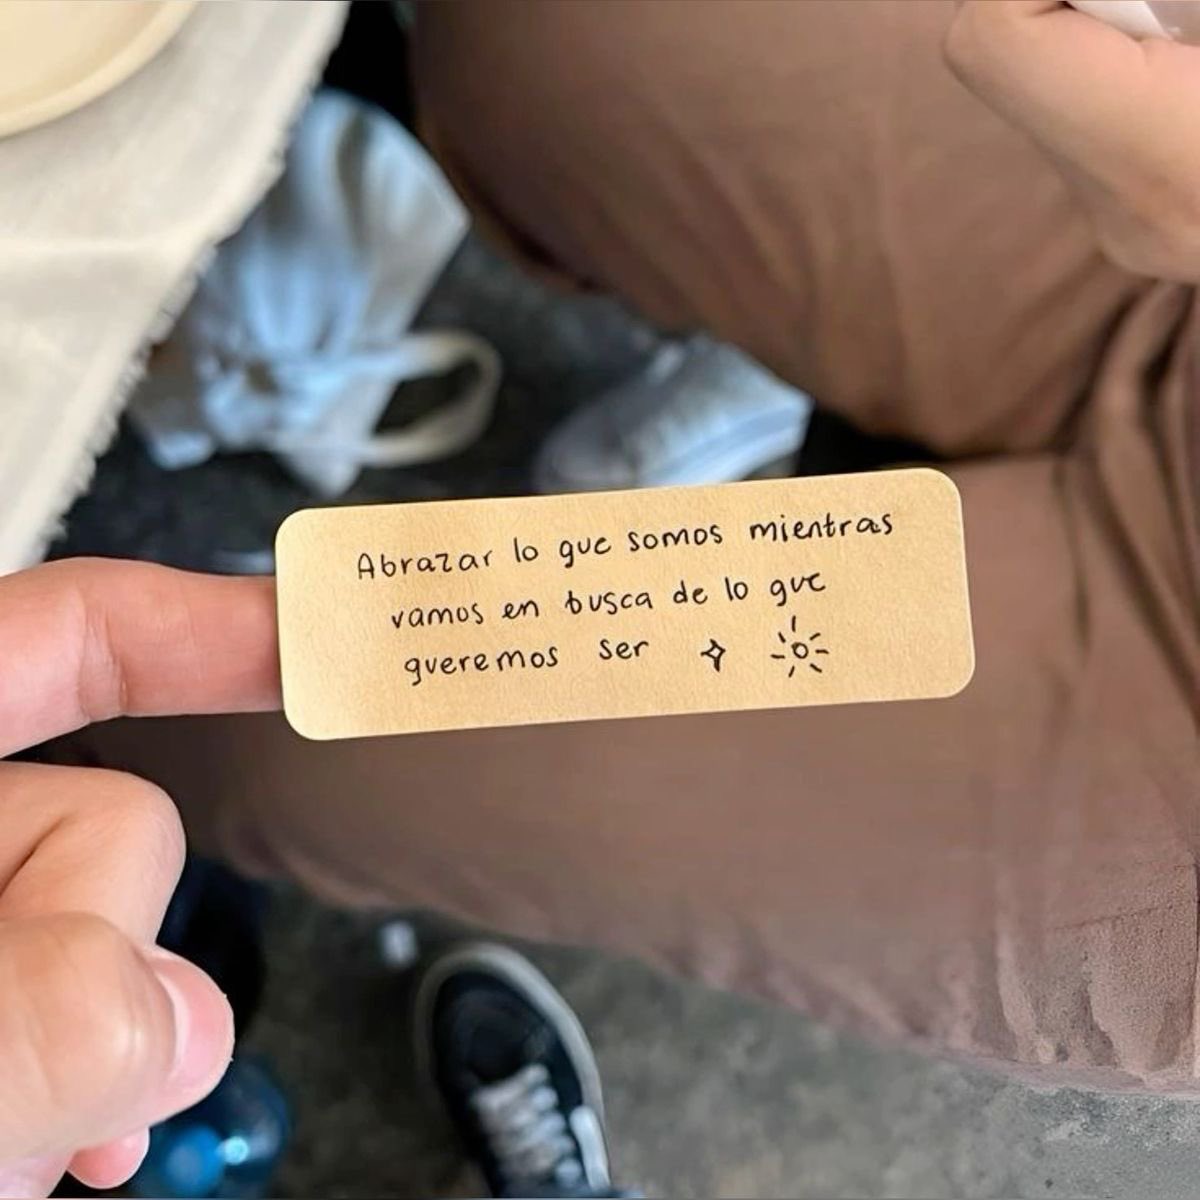 Abrazar lo que somos mientras
vamos en busca de lo que
queremos ser